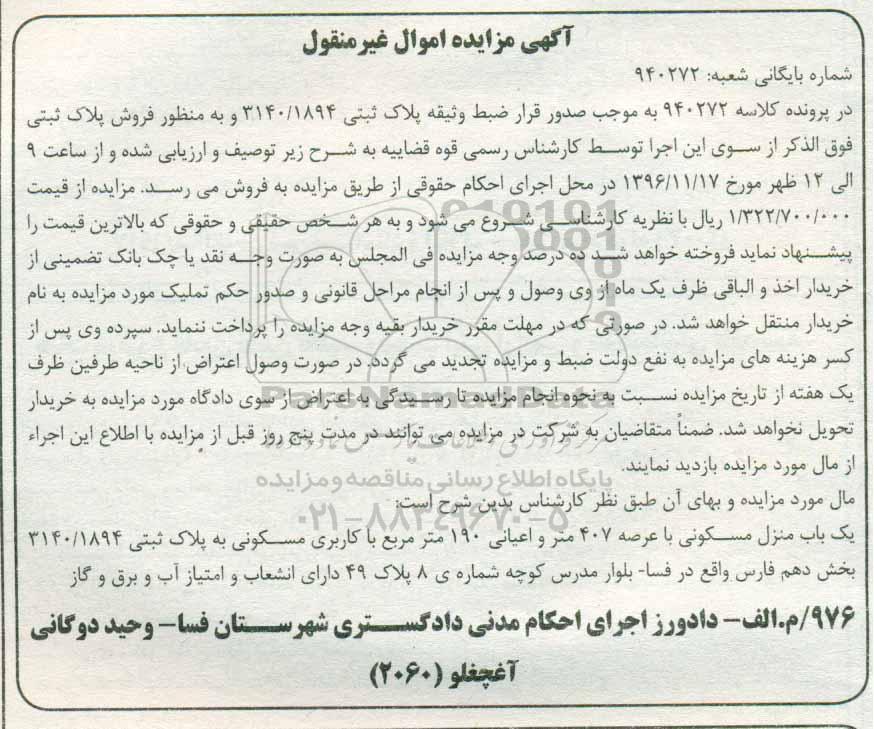 آگهی مزایده اموال غیرمنقول
شماره بایگانی شعبه: ۹۴۰۲۷۲
در پرونده کلاسه ۹۴۰۲۷۲ به موجب صدور قرار ضبط وثیقه پلاک ثبتی ۳۱۴۰/۱۸۹۴ و به منظور فروش پلاک ثبتی
فوق الذکر از سوی این اجرا توسط کارشناس رسمی قوه قضاییه به شرح زیر توصیف و ارزیابی شده و از ساعت ۹
الی ۱۲ ظهر مورخ ۱۳۹۶/۱۱/۱۷ در محل اجرای احکام حقوقی از طریق مزایده به فروش می رسد. مزایده از قیمت
۱/۳۲۲/۷۰۰/۰۰۰ ریال با نظریه کارشناسی شروع می شود و به هر شخص حقیقی و حقوقی که بالاترین قیمت را
پیشنهاد نماید فروخته خواهد شد ده درصد وجه مزایده فی المجلس به صورت وجه نقد یا چک بانک تضمینی از
خریدار اخذ و الباقی ظرف یک ماه از وی وصول و پس از انجام مراحل قانونی و صدور حکم تملیک مورد مزایده به نام
خریدار منتقل خواهد شد. در صورتی که در مهلت مقرر خریدار بقیه وجه مزایده را پرداخت ننماید. سپرده وی پس از
کسر هزینه های مزایده به نفع دولت ضبط و مزایده تجدید می گردد. در صورت وصول اعتراض از ناحیه طرفین ظرف
یک هفته از تاریخ مزایده نسبت به نحوه انجام مزایده تا رسیدگی به اعتراض از سوی دادگاه مورد مزایده به خریدار
تحویل نخواهد شد. ضمناً متقاضیان به شرکت در مزایده می توانند در مدت پنج روز قبل از مزایده با اطلاع این اجراء
از مال مورد مزایده بازدید نمایند.
پایگاه اطلاع رسانی مناقصه و مزایده
مال مورد مزایده و بهای آن طبق نظر کارشناس بدین شرح است:
۰۲۱-۸۸۳۴۹۶۷۰-۵
یک باب منزل مسکونی با عرصه ۴۰۷ متر و اعیانی ۱۹۰ متر مربع با کاربری مسکونی به پلاک ثبتی ۳۱۴۰/۱۸۹۴
بخش دهم فارس واقع در فسا- بلوار مدرس کوچه شماره ی ۸ پلاک ۴۹ دارای انشعاب و امتیاز آب و برق و گاز
۹۷۶/م.الف- دادورز اجرای احکام مدنی دادگستری شهرستان فسا- وحید دوگانی
آغچغلو (۲۰۶۰)